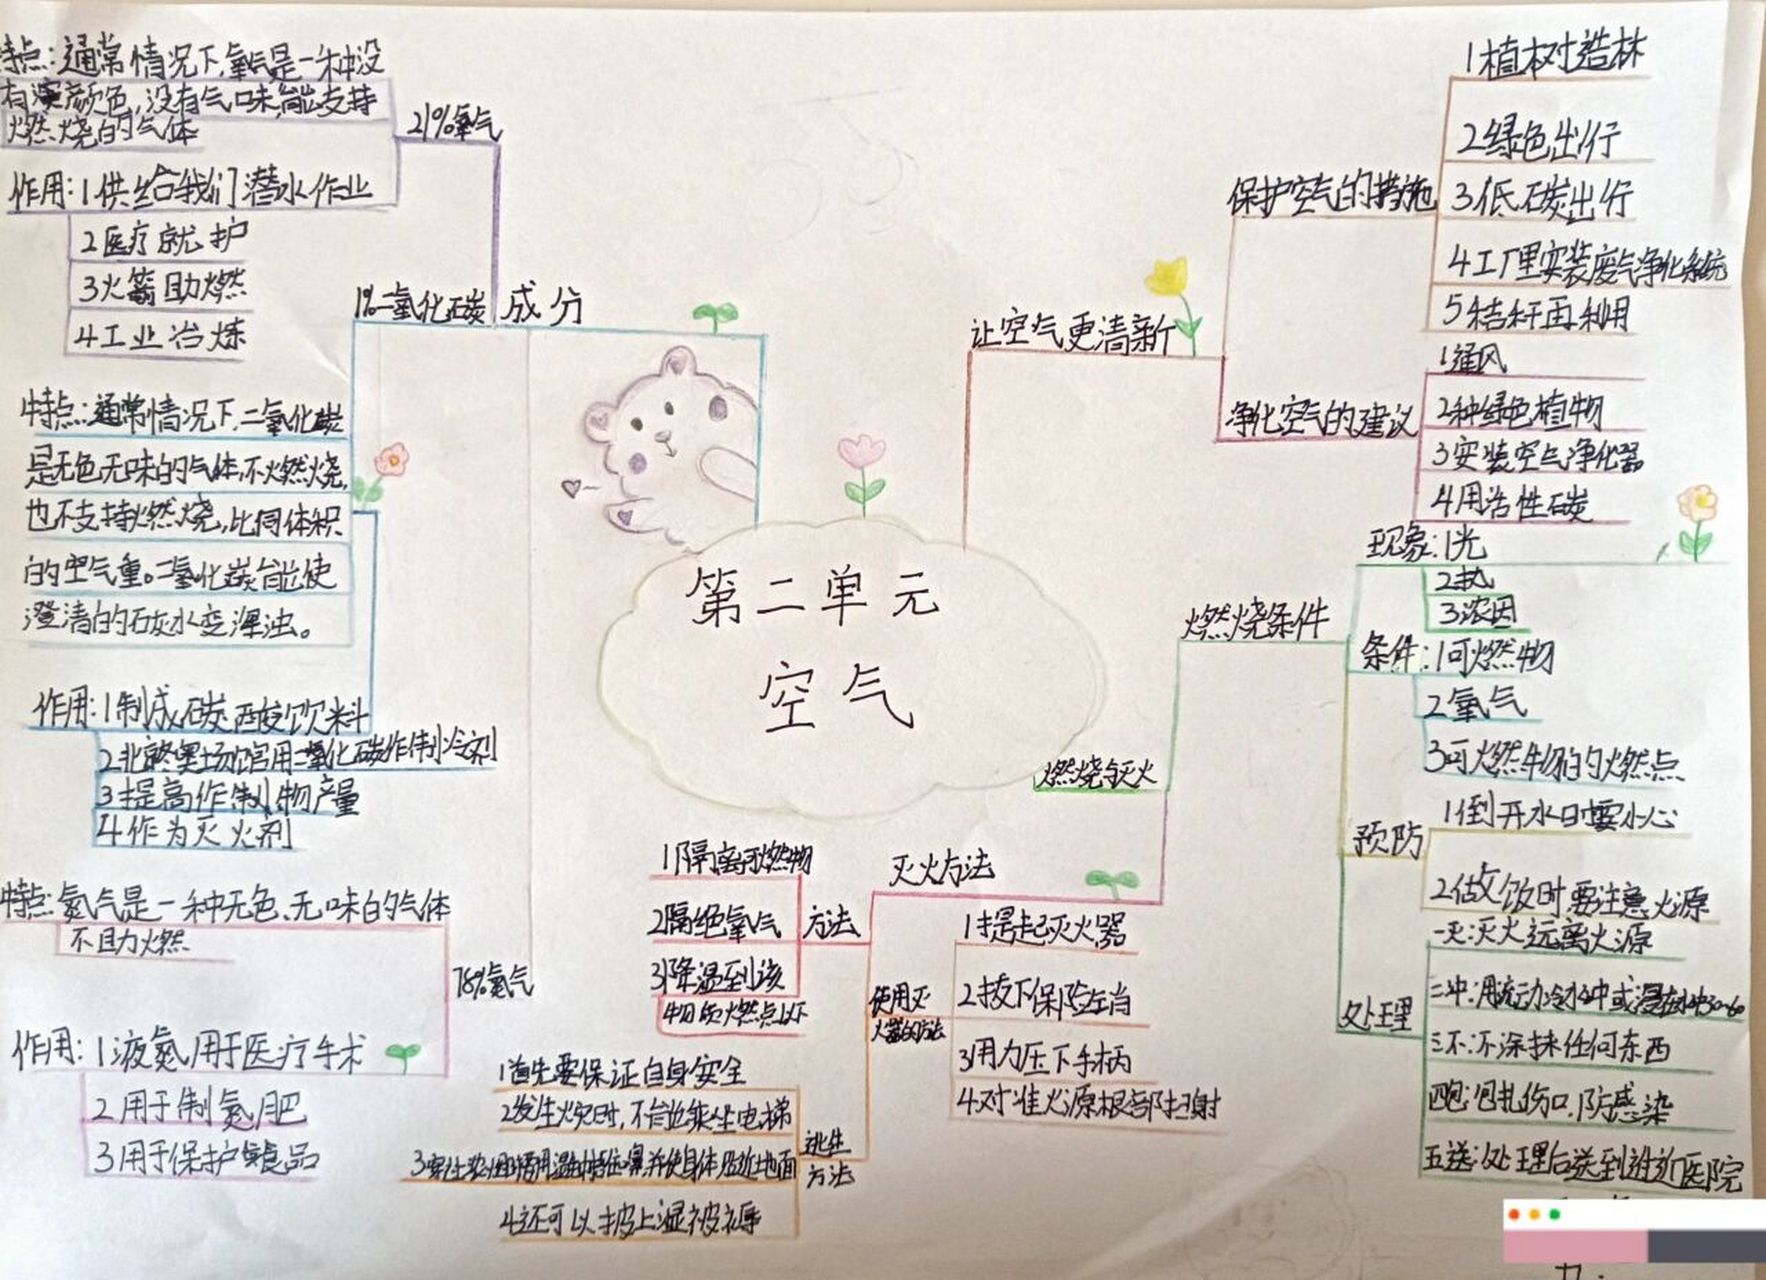 第二单元
空气
成分
21%氧气
特点:通常情况下,氧气是一种没
有颜色,没有气味,能支持
燃烧的气体
作用:1供给我们潜水作业
2医疗就护
3火箭助燃
4工业冶炼
1%二氧化碳
特点:通常情况下,二氧化碳
是无色无味的气体,不燃烧,
也不支持燃烧,比同体积
的空气重。二氧化碳能使
澄清的石灰水变浑浊。
作用:1制成碳酸饮料
2北京冬奥场馆用二氧化碳作制冷剂
3提高作制物产量
4作为灭火剂
78%氮气
特点:氮气是一种无色、无味的气体
不助燃
作用:1液氮用于医疗手术
2用于制氮肥
3用于保护食品
让空气更清新
保护空气的措施
1植树造林
2绿色出行
3低碳出行
4工厂里安装废气净化系统
5秸秆再利用
净化空气的建议
1通风
2种绿色植物
3安装空气净化器
4用活性碳
燃烧与灭火
燃烧条件
现象:1光
2热
3浓因
条件:1可燃物
2氧气
3可燃物的燃点
预防
1倒开水时要小心
2做饭时要注意火源
处理
一灭:灭火远离火源
二冲:用流动冷水冲或浸在水中30-60
三不:不涂抹任何东西
四包:包扎伤口,防感染
五送:处理后送到进近医院
灭火方法
方法
1隔离可燃物
2隔绝氧气
3降温到该
物质燃点以下
使用灭
火器的方法
1提起灭火器
2拔下保险左肖
3用力压下手柄
4对准火源根部扫射
逃生
方法
1首先要保证自身安全
2发生火灾时,不能乘坐电梯
3穿过浓烟时用湿巾捂住口鼻,并使身体贴近地面
4还可以披上湿被褥